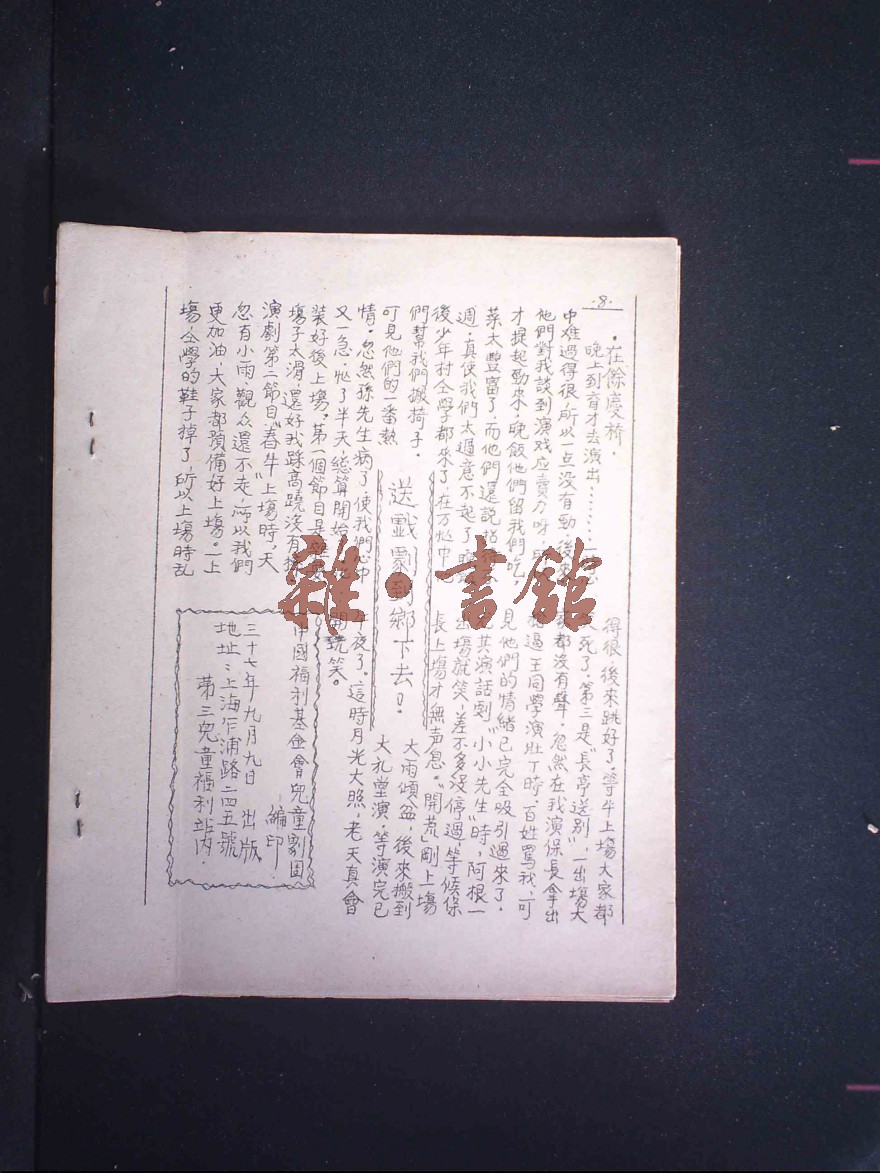 ·8·
·在餘慶橋·
晚上到育才去演出……一
中难過得很，所以一点没有勁，後來
他們對我談到演戏应賣力呀，
才提起勁來，晚飯他們留我們吃，
菜太豐富了，而他們還説招
週，真使我們太過意不起了，
後少年村仝學都來了，在万忙中
們幫我們搬椅子，
可見他們的一番熱
情。忽然孫先生病了，使我們心中
又一急，忙了半天，總算開始，
装好後上塲。第一個節目是
塲子太滑，還好我踩高蹺沒有
演劇第二節目“春牛”上塲時，天
忽有小雨，觀众還不走，而以我們
更加油，大家都預備好上塲。一上
塲，仝學的鞋子掉了，所以上塲時乱
送戲劇到鄉下去！
得很，後來跳好了，等牛上塲大家都
死了，第三是“長亭送别”，一出塲大
家都沒有聲，忽然在我演保長拿出
過王同學演壯丁時，百姓罵我，可
見他們的情緒已完全吸引過來了。
尤其演話劇“小小先生”時，阿根一
出塲就笑，差不多没停過，等候保
長上塲才無声息。“開荒”剛上一塲
大雨傾盆，後來搬到
大礼堂演，等演完已
午夜了。這時月光大照，老天真會
開玩笑。
中國福利基金會兒童劇團
編印
三十七年九月九日 出版
地址：上海乍浦路二四五號
第三兒童福利站内·
雜·書館